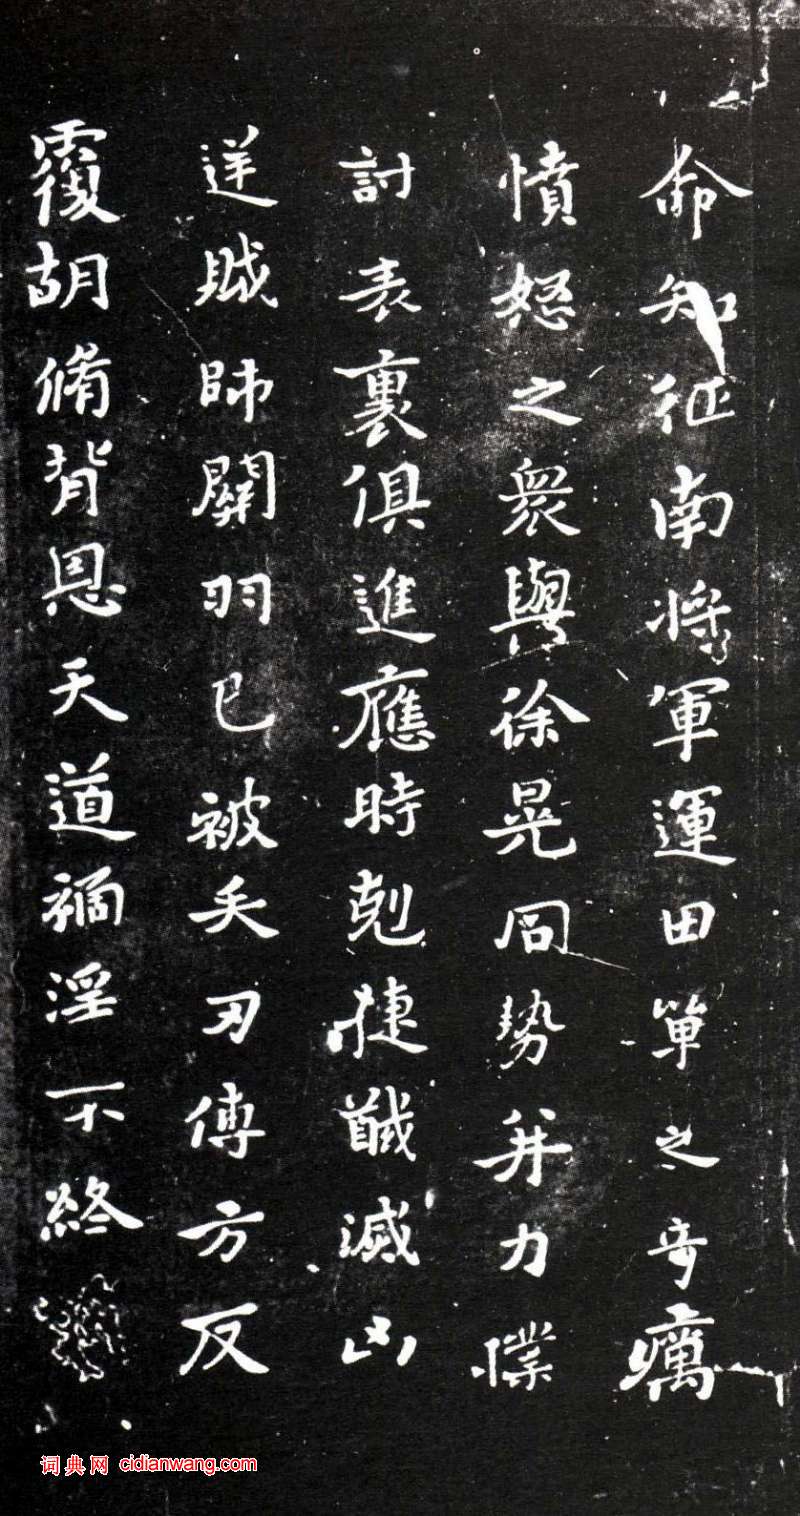 命知征南將軍運田單之奇厲
憤怒之眾與徐晃同勢并力撲
討表裏俱進應時剋捷馘滅凶
逆賊帥關羽已被矢刃傅方反
覆胡脩背恩天道禍淫不終
词典网 cidianwang.com